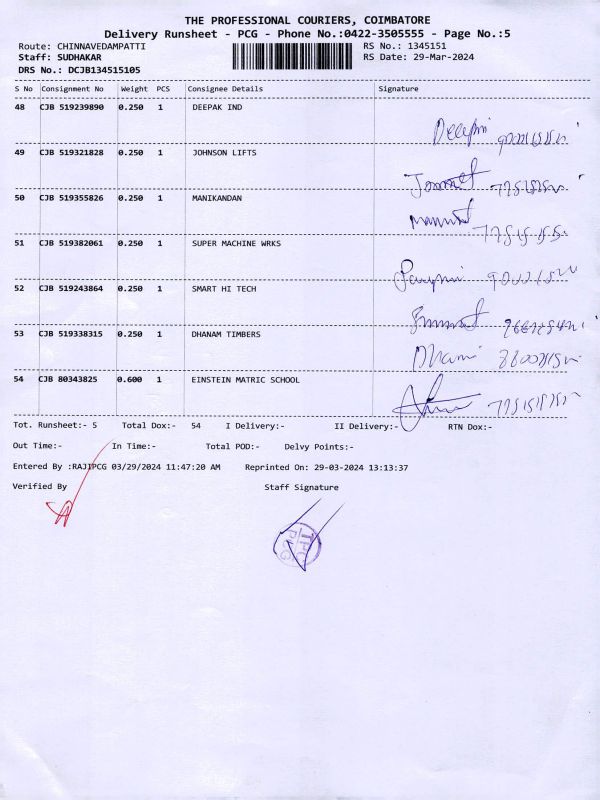 THE PROFESSIONAL COURIERS, COIMBATORE
Delivery Runsheet - PCG - Phone No.:0422-3505555 - Page No.:5
Route: CHINNAVEDAMPATTI RS No.: 1345151
Staff: SUDHAKAR RS Date: 29-Mar-2024
DRS No.: DCJB134515105
S No Consignment No Weight PCS Consignee Details Signature
48 CJB 519239890 0.250 1 DEEPAK IND
49 CJB 519321828 0.250 1 JOHNSON LIFTS
50 CJB 519355826 0.250 1 MANIKANDAN
51 CJB 519382061 0.250 1 SUPER MACHINE WRKS
52 CJB 519243864 0.250 1 SMART HI TECH
53 CJB 519338315 0.250 1 DHANAM TIMBERS
54 CJB 80343825 0.600 1 EINSTEIN MATRIC SCHOOL
Tot. Runsheet:- 5 Total Dox:- 54 I Delivery:- II Delivery:- RTN Dox:-
Out Time:- In Time:- Total POD:- Delvy Points:-
Entered By :RAJIPCG 03/29/2024 11:47:20 AM Reprinted On: 29-03-2024 13:13:37
Verified By Staff Signature
TPC
PCG